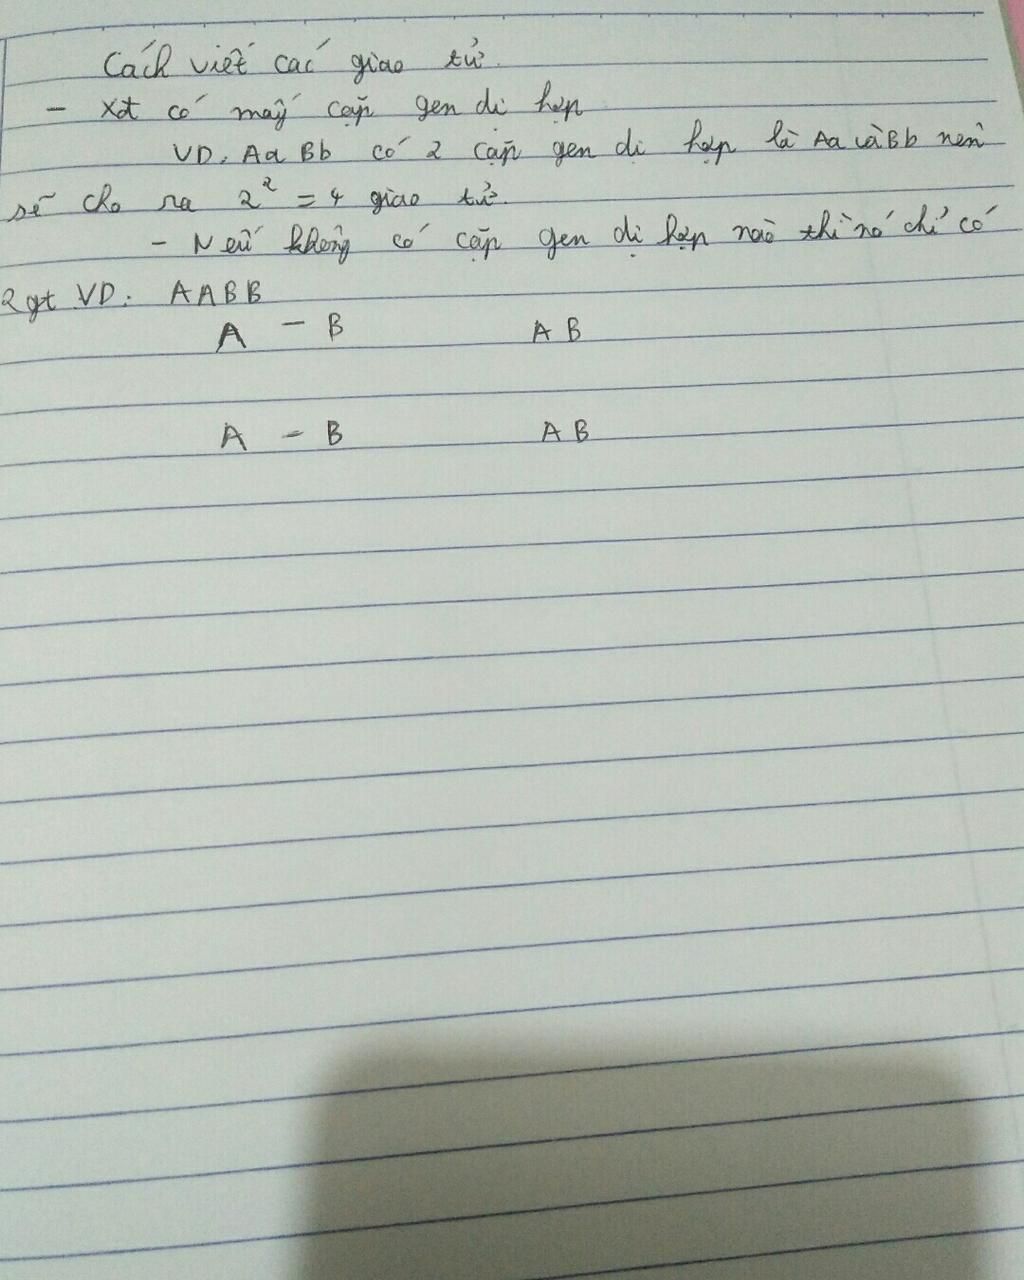 Cách viết các giao tử.
- Xđ có mấy cặp gen dị hợp
VD: AaBb có 2 cặp gen dị hợp là Aa và Bb nên
sẽ cho ra 2² = 4 giao tử.
- Nếu không có cặp gen dị hợp nào thì nó chỉ có
2 gt VD: AABB
A - B AB
A - B AB